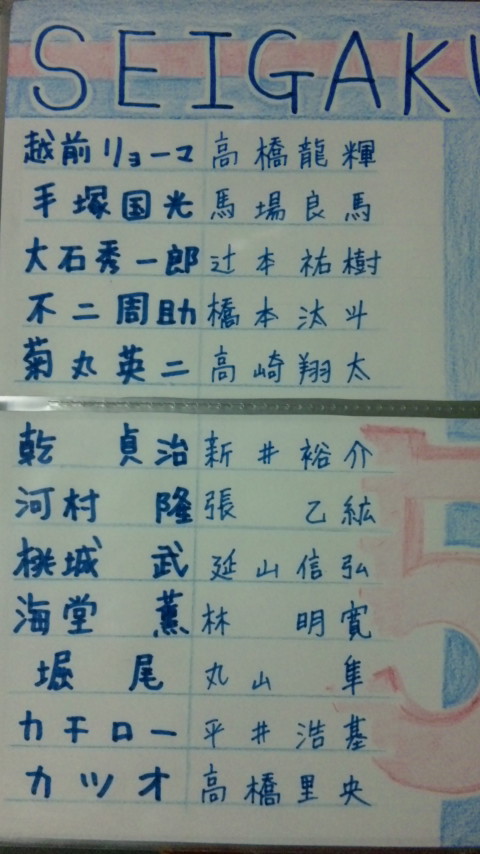 SEIGAKU
越前リョーマ 高橋龍輝
手塚国光 馬場良馬
大石秀一郎 辻本祐樹
不二周助 橋本汰斗
菊丸英二 高崎翔太
乾 貞治 新井裕介
河村 隆 張 乙紘
桃城 武 延山信弘
海堂 薫 林 明寛
堀尾 丸山 隼
カチロー 平井浩基
カツオ 高橋里央
5